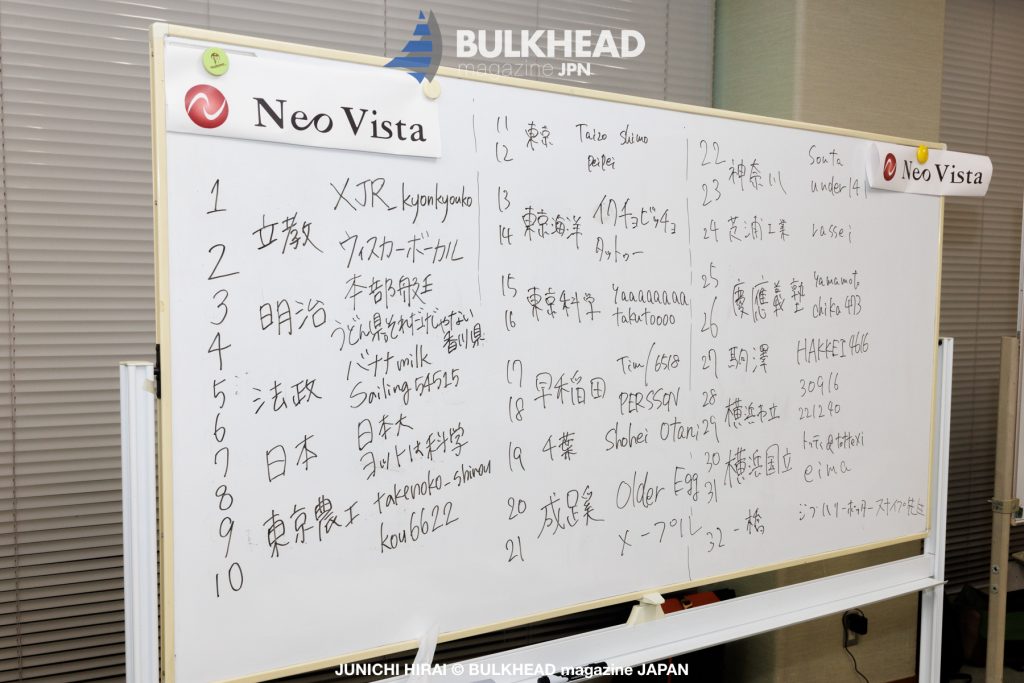 BULKHEAD
magazine JPN
Neo Vista
Neo Vista
1 立教 XJR_kyonkyouko
2 ウィスカーボーカル
3 明治 本部艇
4 うどん県それだけじゃない
香川県
5 法政 バナナmilk
6 Sailing54515
7 日本 日本大
8 ヨットは科学
9 東京農工 takenoko_shinou
10 kou6622
11 東京 Taizo Shimo
12 peipei
13 東京海洋 イワチョビッチョ
14 タットゥー
15 東京科学 Yaaaaaaaa
16 takutoooo
17 早稲田 Tim/6518
18 PERSSON
19 千葉 Shohei Otani
20 成蹊 Older Egg
21 メープル
22 神奈川 Souta
23 under141
24 芝浦工業 rassei
25 慶應義塾 Yamamoto
26 chika473
27 駒澤 HAKKEI4616
28 横浜市立 30916
29 221240
30 横浜国立
31 eima
32 一橋
JUNICHI HIRAI © BULKHEAD magazine JAPAN